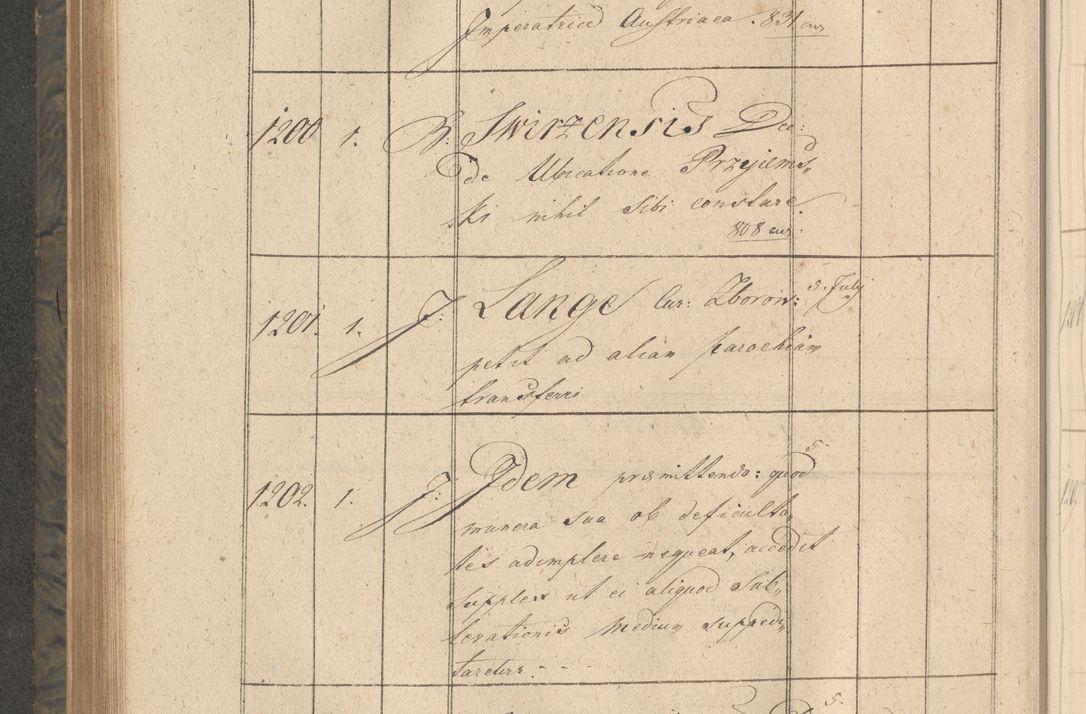 Imperatrice Austriaca. 831 cur
1200 1. R: Swirzensis Dec:
de Ubicatione Przyiems„
ki nihil sibi constare
808 cur.
1201. 1. J: Lange Cur: Zborow: 5. July
petit ad aliam parochiam
transferri
5.
1202. 1. J: Idem praemittendo: quod
munera sua ob deficulta„
tes adimplere nequeat, accedit
supplex ut ei aliquod Sub„
levationis medium suppedi„
taretur. - - -
5.